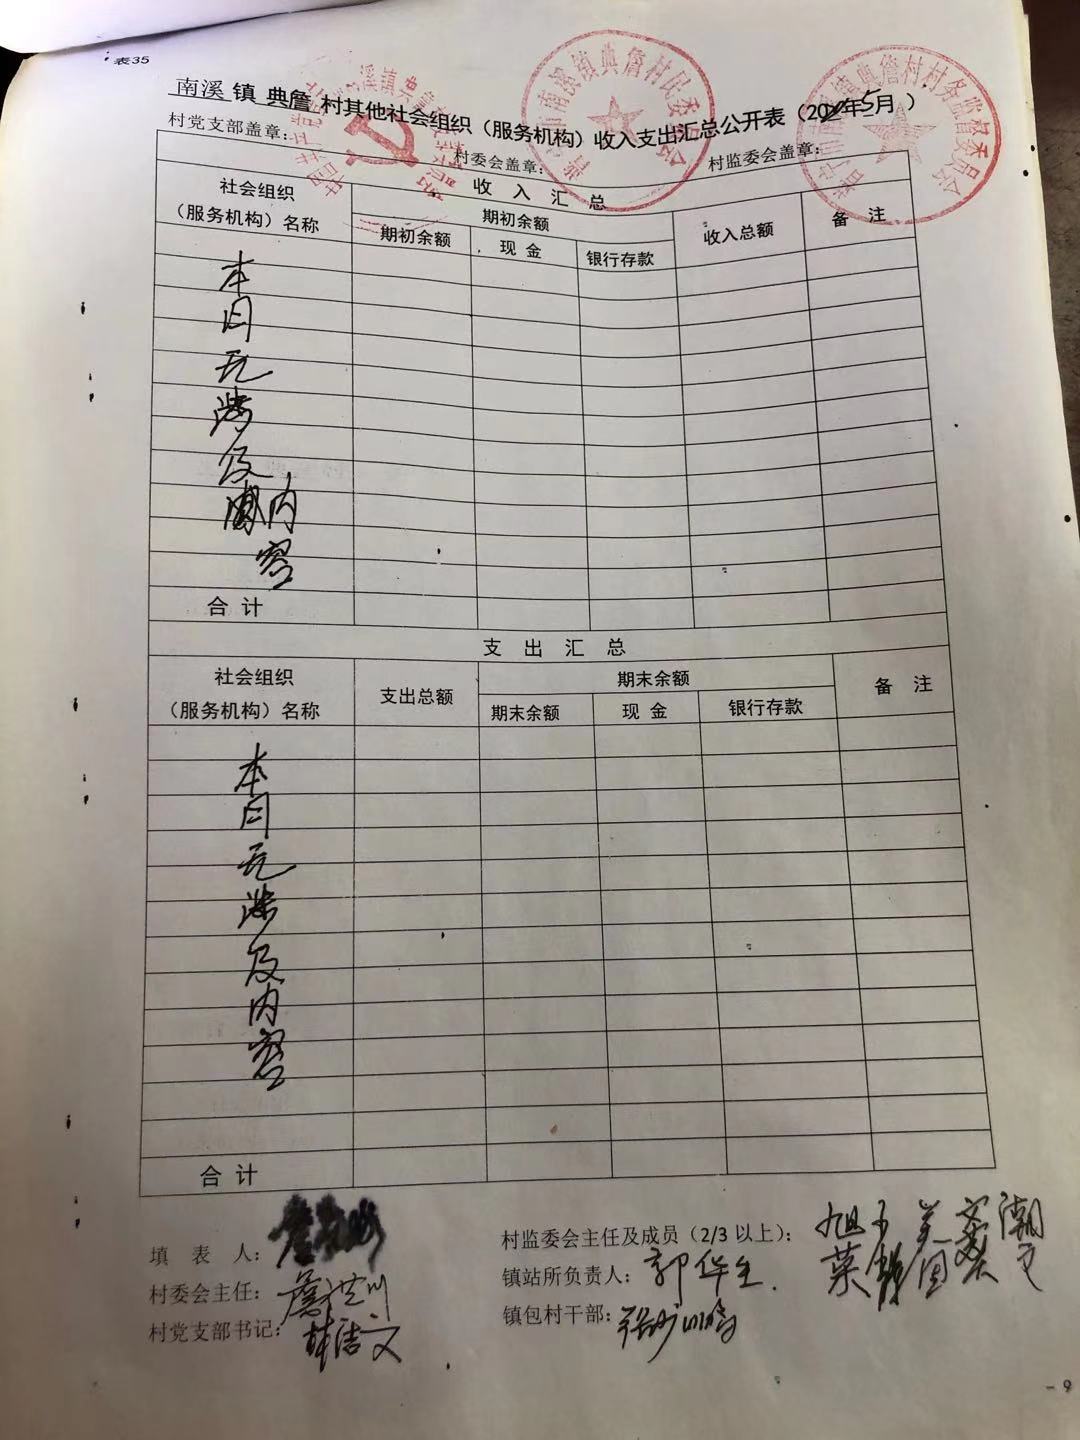 表35
南溪 镇 典詹 村其他社会组织（服务机构）收入支出汇总公开表（202 年5月）
村党支部盖章： 村委会盖章： 村监委会盖章：
收 入 汇 总
社会组织
（服务机构）名称
期初余额
收入总额
备 注
期初余额 现 金 银行存款
本
月
无
涉
及
内
容
合 计
支 出 汇 总
社会组织
（服务机构）名称
支出总额
期末余额
备 注
期末余额 现 金 银行存款
本
月
无
涉
及
内
容
合 计
填 表 人：
村监委会主任及成员（2/3 以上）：
村委会主任：
镇站所负责人：郭华生
村党支部书记：林洁文
镇包村干部：
- 9